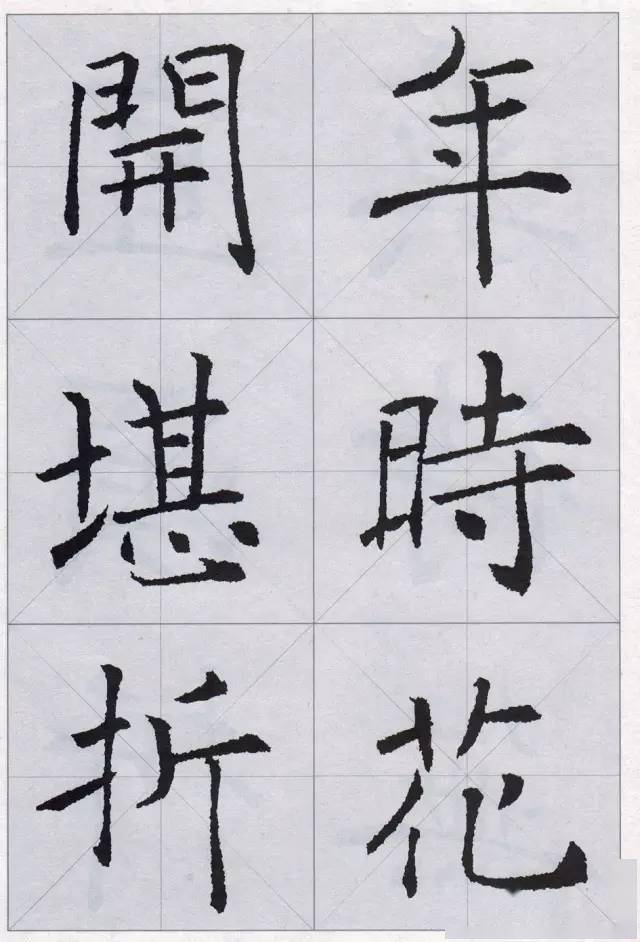 年時花
開堪折